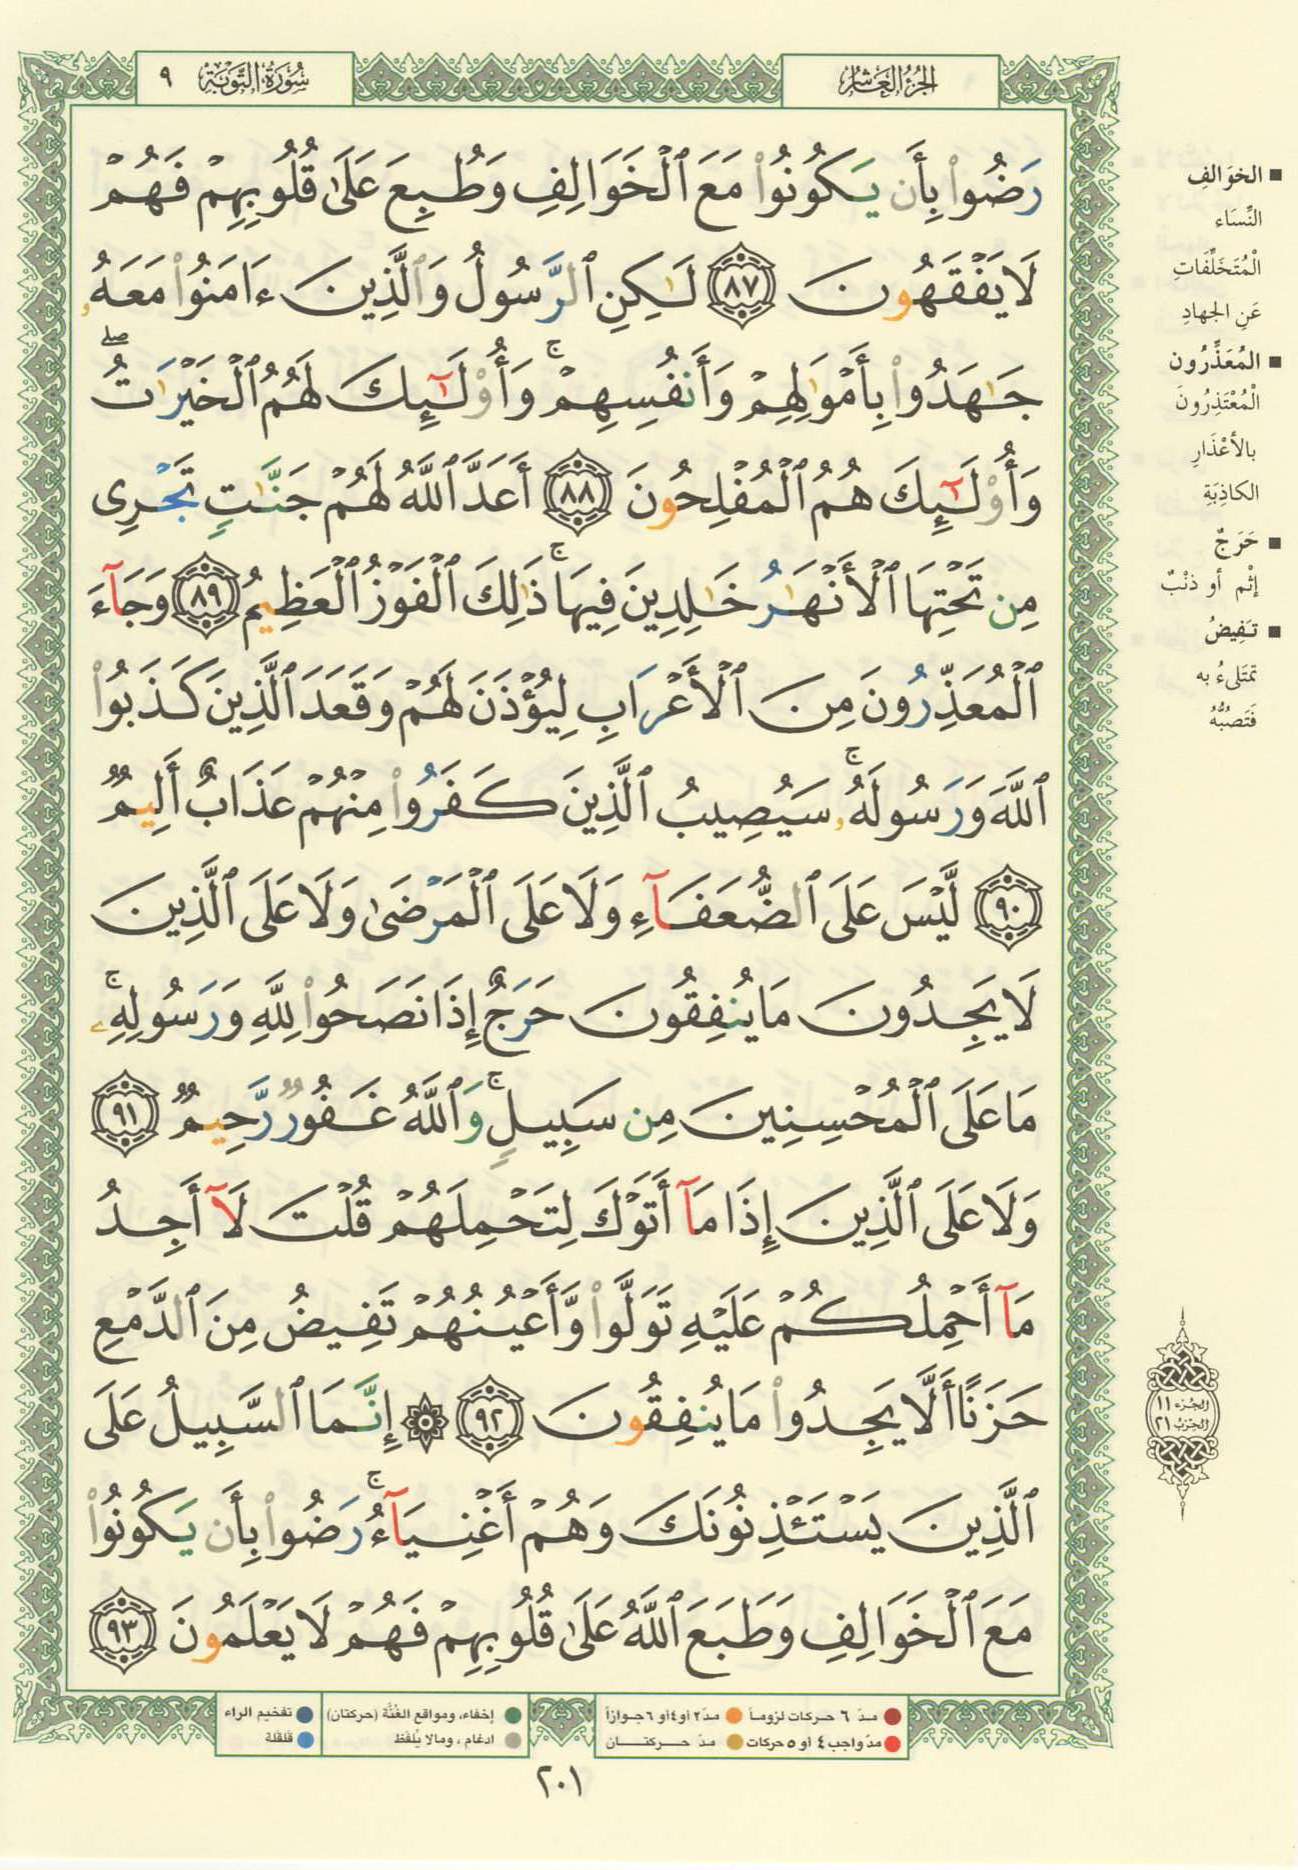 الجزء العاشر
سورة التوبة ٩
رَضُوا۟ بِأَن يَكُونُوا۟ مَعَ ٱلْخَوَالِفِ وَطُبِعَ عَلَىٰ قُلُوبِهِمْ فَهُمْ
لَا يَفْقَهُونَ ٨٧ لَـٰكِنِ ٱلرَّسُولُ وَٱلَّذِينَ ءَامَنُوا۟ مَعَهُۥ
جَـٰهَدُوا۟ بِأَمْوَٰلِهِمْ وَأَنفُسِهِمْ ۚ وَأُو۟لَـٰٓئِكَ لَهُمُ ٱلْخَيْرَٰتُ ۖ
وَأُو۟لَـٰٓئِكَ هُمُ ٱلْمُفْلِحُونَ ٨٨ أَعَدَّ ٱللَّهُ لَهُمْ جَنَّـٰتٍ تَجْرِى
مِن تَحْتِهَا ٱلْأَنْهَـٰرُ خَـٰلِدِينَ فِيهَا ۚ ذَٰلِكَ ٱلْفَوْزُ ٱلْعَظِيمُ ٨٩ وَجَآءَ
ٱلْمُعَذِّرُونَ مِنَ ٱلْأَعْرَابِ لِيُؤْذَنَ لَهُمْ وَقَعَدَ ٱلَّذِينَ كَذَبُوا۟
ٱللَّهَ وَرَسُولَهُۥ ۚ سَيُصِيبُ ٱلَّذِينَ كَفَرُوا۟ مِنْهُمْ عَذَابٌ أَلِيمٌ
٩٠ لَّيْسَ عَلَى ٱلضُّعَفَآءِ وَلَا عَلَى ٱلْمَرْضَىٰ وَلَا عَلَى ٱلَّذِينَ
لَا يَجِدُونَ مَا يُنفِقُونَ حَرَجٌ إِذَا نَصَحُوا۟ لِلَّهِ وَرَسُولِهِۦ ۚ
مَا عَلَى ٱلْمُحْسِنِينَ مِن سَبِيلٍ ۚ وَٱللَّهُ غَفُورٌ رَّحِيمٌ ٩١
وَلَا عَلَى ٱلَّذِينَ إِذَا مَآ أَتَوْكَ لِتَحْمِلَهُمْ قُلْتَ لَآ أَجِدُ
مَآ أَحْمِلُكُمْ عَلَيْهِ تَوَلَّوا۟ وَّأَعْيُنُهُمْ تَفِيضُ مِنَ ٱلدَّمْعِ
حَزَنًا أَلَّا يَجِدُوا۟ مَا يُنفِقُونَ ٩٢ ۞ إِنَّمَا ٱلسَّبِيلُ عَلَى
ٱلَّذِينَ يَسْتَـْٔذِنُونَكَ وَهُمْ أَغْنِيَآءُ ۚ رَضُوا۟ بِأَن يَكُونُوا۟
مَعَ ٱلْخَوَالِفِ وَطَبَعَ ٱللَّهُ عَلَىٰ قُلُوبِهِمْ فَهُمْ لَا يَعْلَمُونَ ٩٣
■ الخوَالفِ
النِّسَاء
الْمُتَخَلِّفَاتِ
عَنِ الجهادِ
■ المُعَذِّرُون
الْمُعْتَذِرُونَ
بالأعْذَارِ
الكاذِبَةِ
■ حَرَجٌ
إثْم أو ذنْبٌ
■ تفِيضُ
تمتَلىءُ به
فَتَصُبُّهُ
الجزء ١١
الحزب ٢١
مدّ ٦ حركات لزوماً مدّ ٢ أو ٤ أو ٦ جوازاً
مدّ واجب ٤ أو ٥ حركات مدّ حركتان
إخفاء، ومواقع الغُنَّة (حركتان)
ادغام، ومالا يُلفَظ
تفخيم الراء
قلقلة
٢٠١